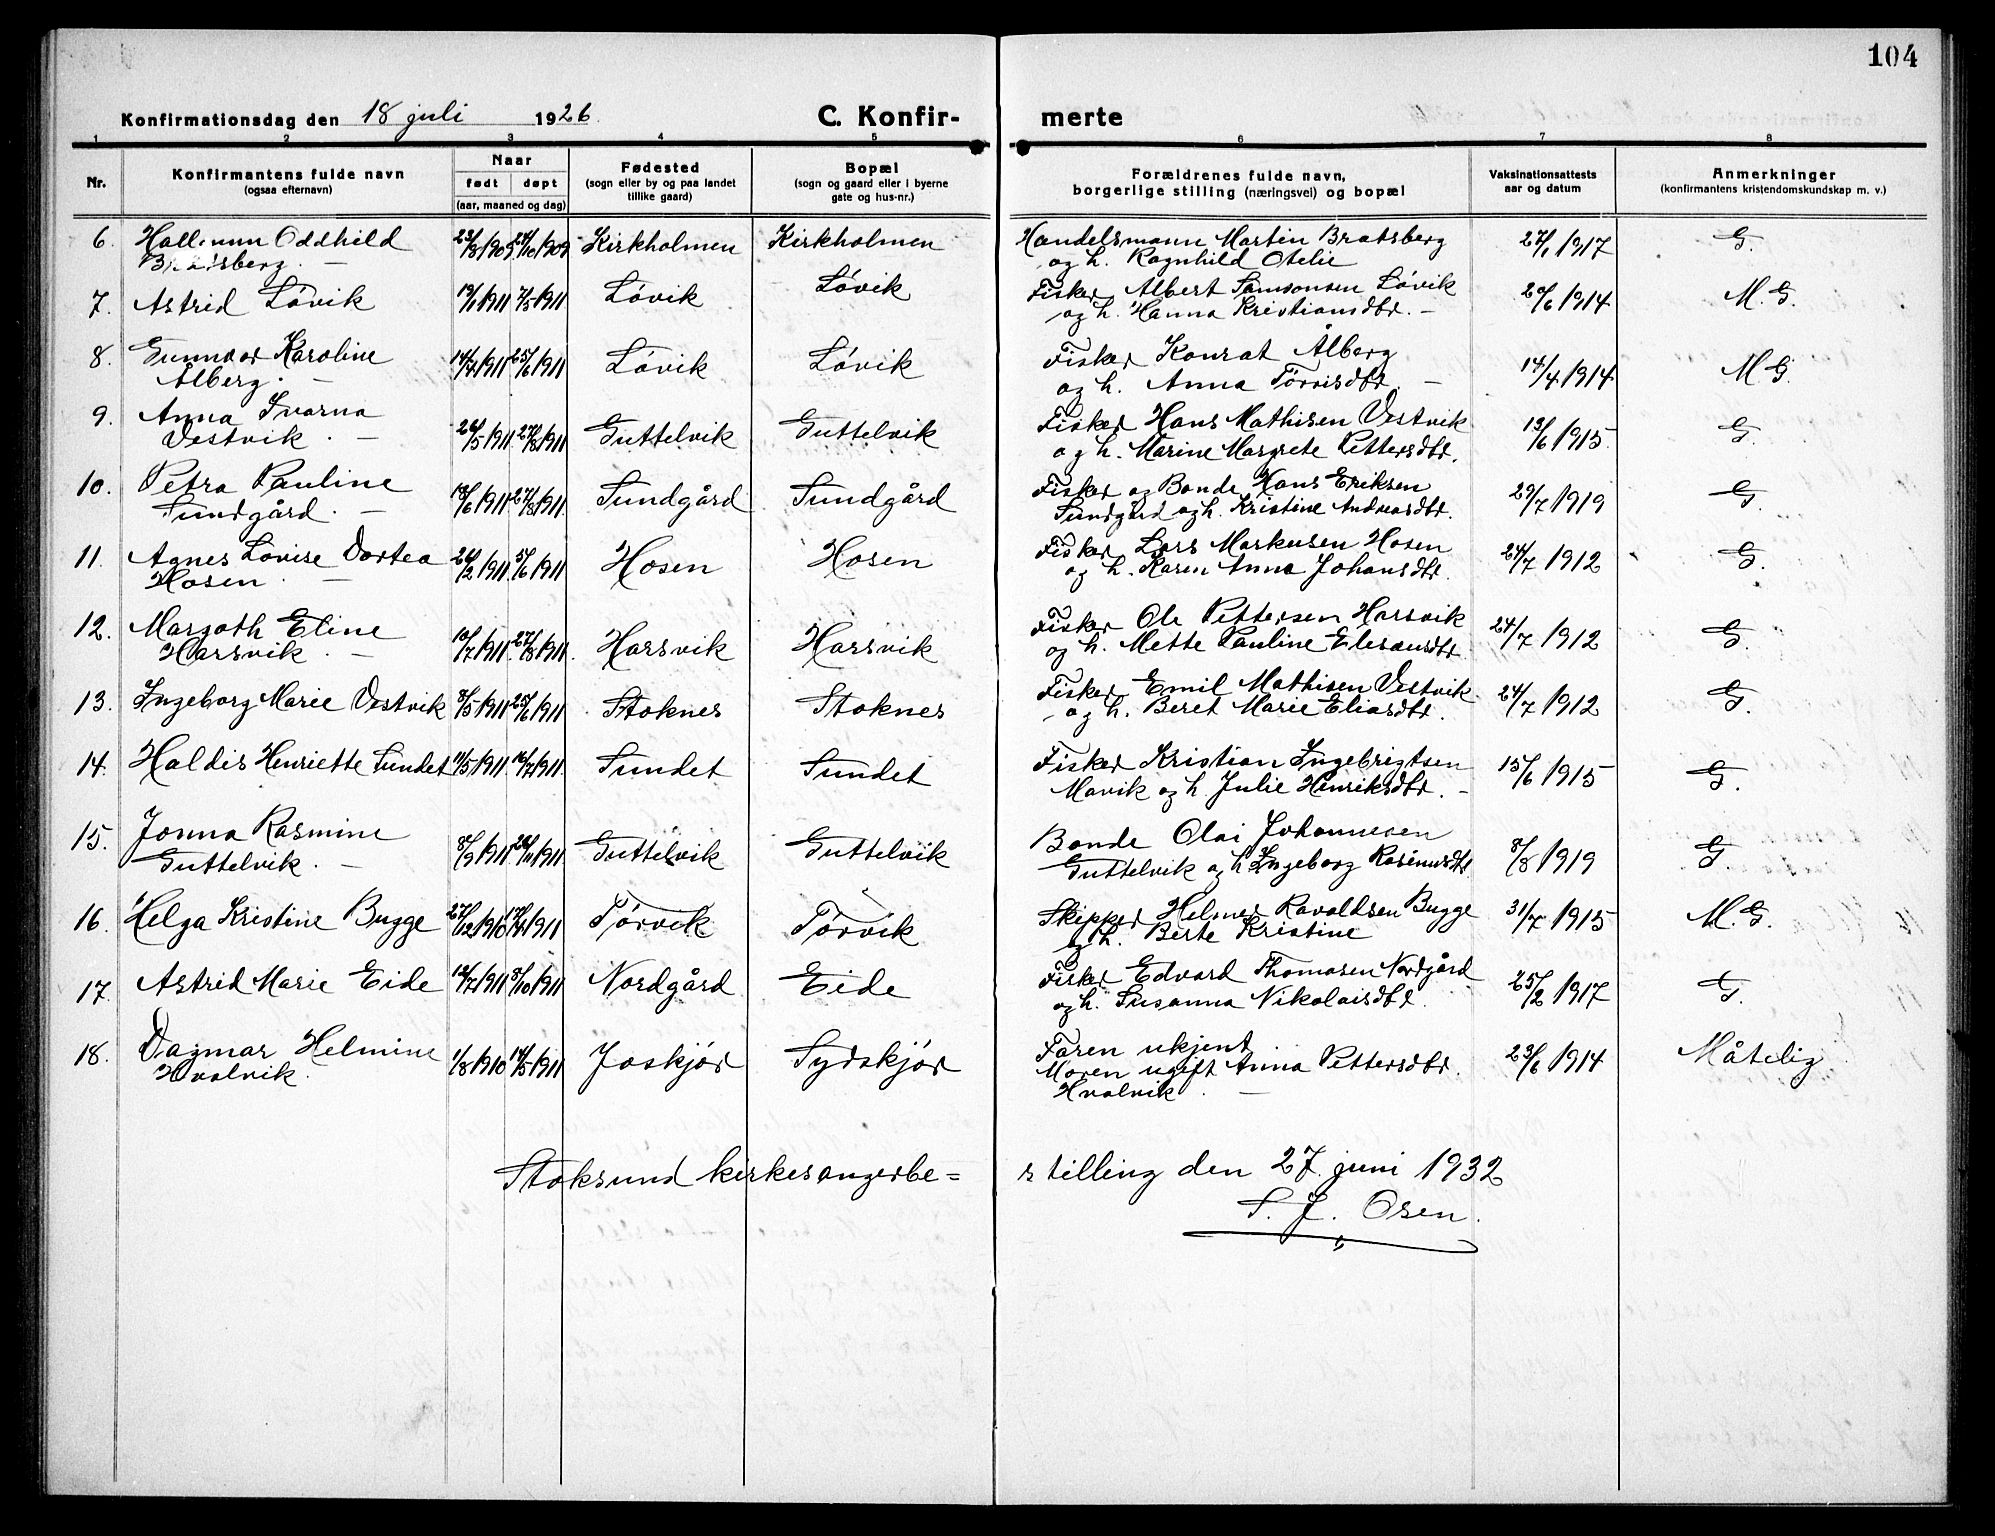 104
Konfirmationsdag den 18 juli 1926. C. Konfir- merte
1 2 3 4 5 6 7 8
Nr.
Konfirmantens fulde navn
(ogsaa efternavn)
Naar
født døpt
(aar, maaned og dag)
Fødested
(sogn eller by og paa landet
tillike gaard)
Bopæl
(sogn og gaard eller i byerne
gate og hus-nr.)
Forældrenes fulde navn,
borgerlige stilling (næringsvei) og bopæl
Vaksinationsattests
aar og datum
Anmerkninger
(konfirmantens kristendomskundskap m. v.)
6. Oddhild Kirkholmen Kirkholmen Handelsmann Martin Bratsberg 27/1 1917 G.
og h. Ragnhild Otelie
7. Astrid Løvik 19/1 1911 7/5 1911 Løvik Løvik Fisker Albert Simonsen Løvik 20/6 1914 M. G.
og h. Hanna Kristiansdtr. -
8. Gunnvor Karoline 14/4 1911 25/6 1911 Løvik Løvik Fisker Konrat Ålberg 14/4 1914 M G.
Ålberg. - og h. Anna Tørrisdtr. -
9. Anna Ivarna 26/5 1911. 27/8 1911 Guttelvik Guttelvik Fisker Hans Mathisen Vestvik 13/6 1915. G.
Vestvik. - og h. Marine Margrete Pettersdtr.
10. Petra Pauline 18/6 1911 27/8 1911. Sundgård Sundgård Fisker og Bonde Hans Eriksen 29/7 1919 G.
Sundgård. - Sundgård og h. Kristine Andreasdtr.
11. Agnes Lovise Dortea 26/2 1911 5/6 1911 Hosen Hosen Fisker Lars Markusen Hosen 24/7 1912 G.
Hosen. - og h. Karen Anna Johansdtr.
12. Margoth Eline 10/7 1911. 27/8 1911. Harsvik Harsvik Fisker Ole Pettersen Harsvik 24/7 1912 G.
Harsvik. - og h. Mette Pauline
13. Ingeborg Marie Vestvik 8/5 1911 25/6 1911 Stoknes Stoknes Fisker Emil Mathisen Vestvik 24/7 1912 G.
og h. Beret Marie Eliasdtr.
14. Haldis Henriette Sundet 11/5 1911 16/7 1911. Sundet Sundet Fisker Kristian Ingebrigtsen 15/6 1915 G.
Mavik og h. Julie Henriksdtr. -
15. Jonna Rasmine 8/9 1911 26/11 1911. Guttelvik Guttelvik Bonde Olai Johannesen 8/8 1919 G.
Guttelvik. - Guttelvik og h Ingeborg Rasmusdtr
16. Helga Kristine Bugge 27/12 1910 17/4 1911 Tørvik Tørvik Skipper Helmer Ravaldsen Bugge 31/7 1915 M. G.
og h. Berte Kristine
17. Astrid Marie Eide 12/7 1911 8/10 1911 Nordgård Eide Fisker Edvard Thomasen Nordgård 25/2 1917 G.
og h. Susanna Nikolaisdtr.
18. Dagmar Helmine 1/8 1910 14/5 1911 Joskjør Sydskjør Faren ukjent. 23/6 1914 Måtelig
Hvalvik. Moren ugift Anna Pettersdtr.
Hvalvik. -
Stoksund kirkesangerbe= stilling den 27. juni 1932
S. J. Osen.